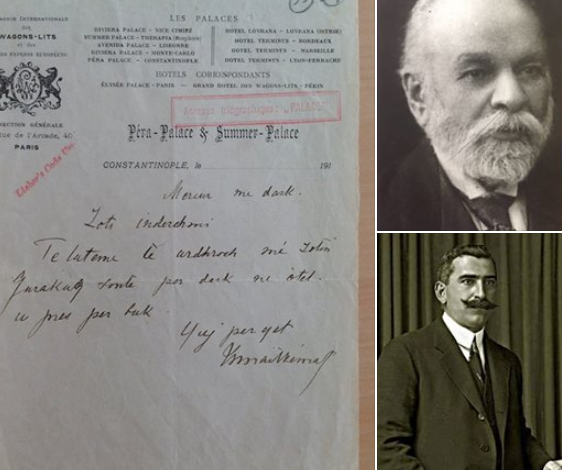 LES PALACES
AGNIE INTERNATIONALE
DES
WAGONS-LITS
et des
DS EXPRESS EUROPÉENS
DIRECTION GÉNÉRALE
rue de l'Arcade, 40
PARIS
RIVIERA PALACE - NICE CIMIEZ
SUMMER PALACE - THERAPIA (Bosphore)
AVENIDA PALACE - LISBONNE
RIVIERA PALACE - MONTE-CARLO
PÉRA PALACE - CONSTANTINOPLE
HOTEL LOVRANA - LOVRANA (ISTRIE)
HOTEL TERMINUS - BORDEAUX
HOTEL TERMINUS - MARSEILLE
HOTEL TERMINUS - LYON-PERRACHE
HOTELS CORRESPONDANTS
ÉLYSÉE PALACE - PARIS - GRAND HOTEL DES WAGONS-LITS - PÉKIN
Adresse télégraphique: "PALACE"
Péra-Palace & Summer-Palace
CONSTANTINOPLE, le 191
me dark.
Zoti
Te lutemi të me Zotin
per dark ne otel.
u pres per buk
per jet